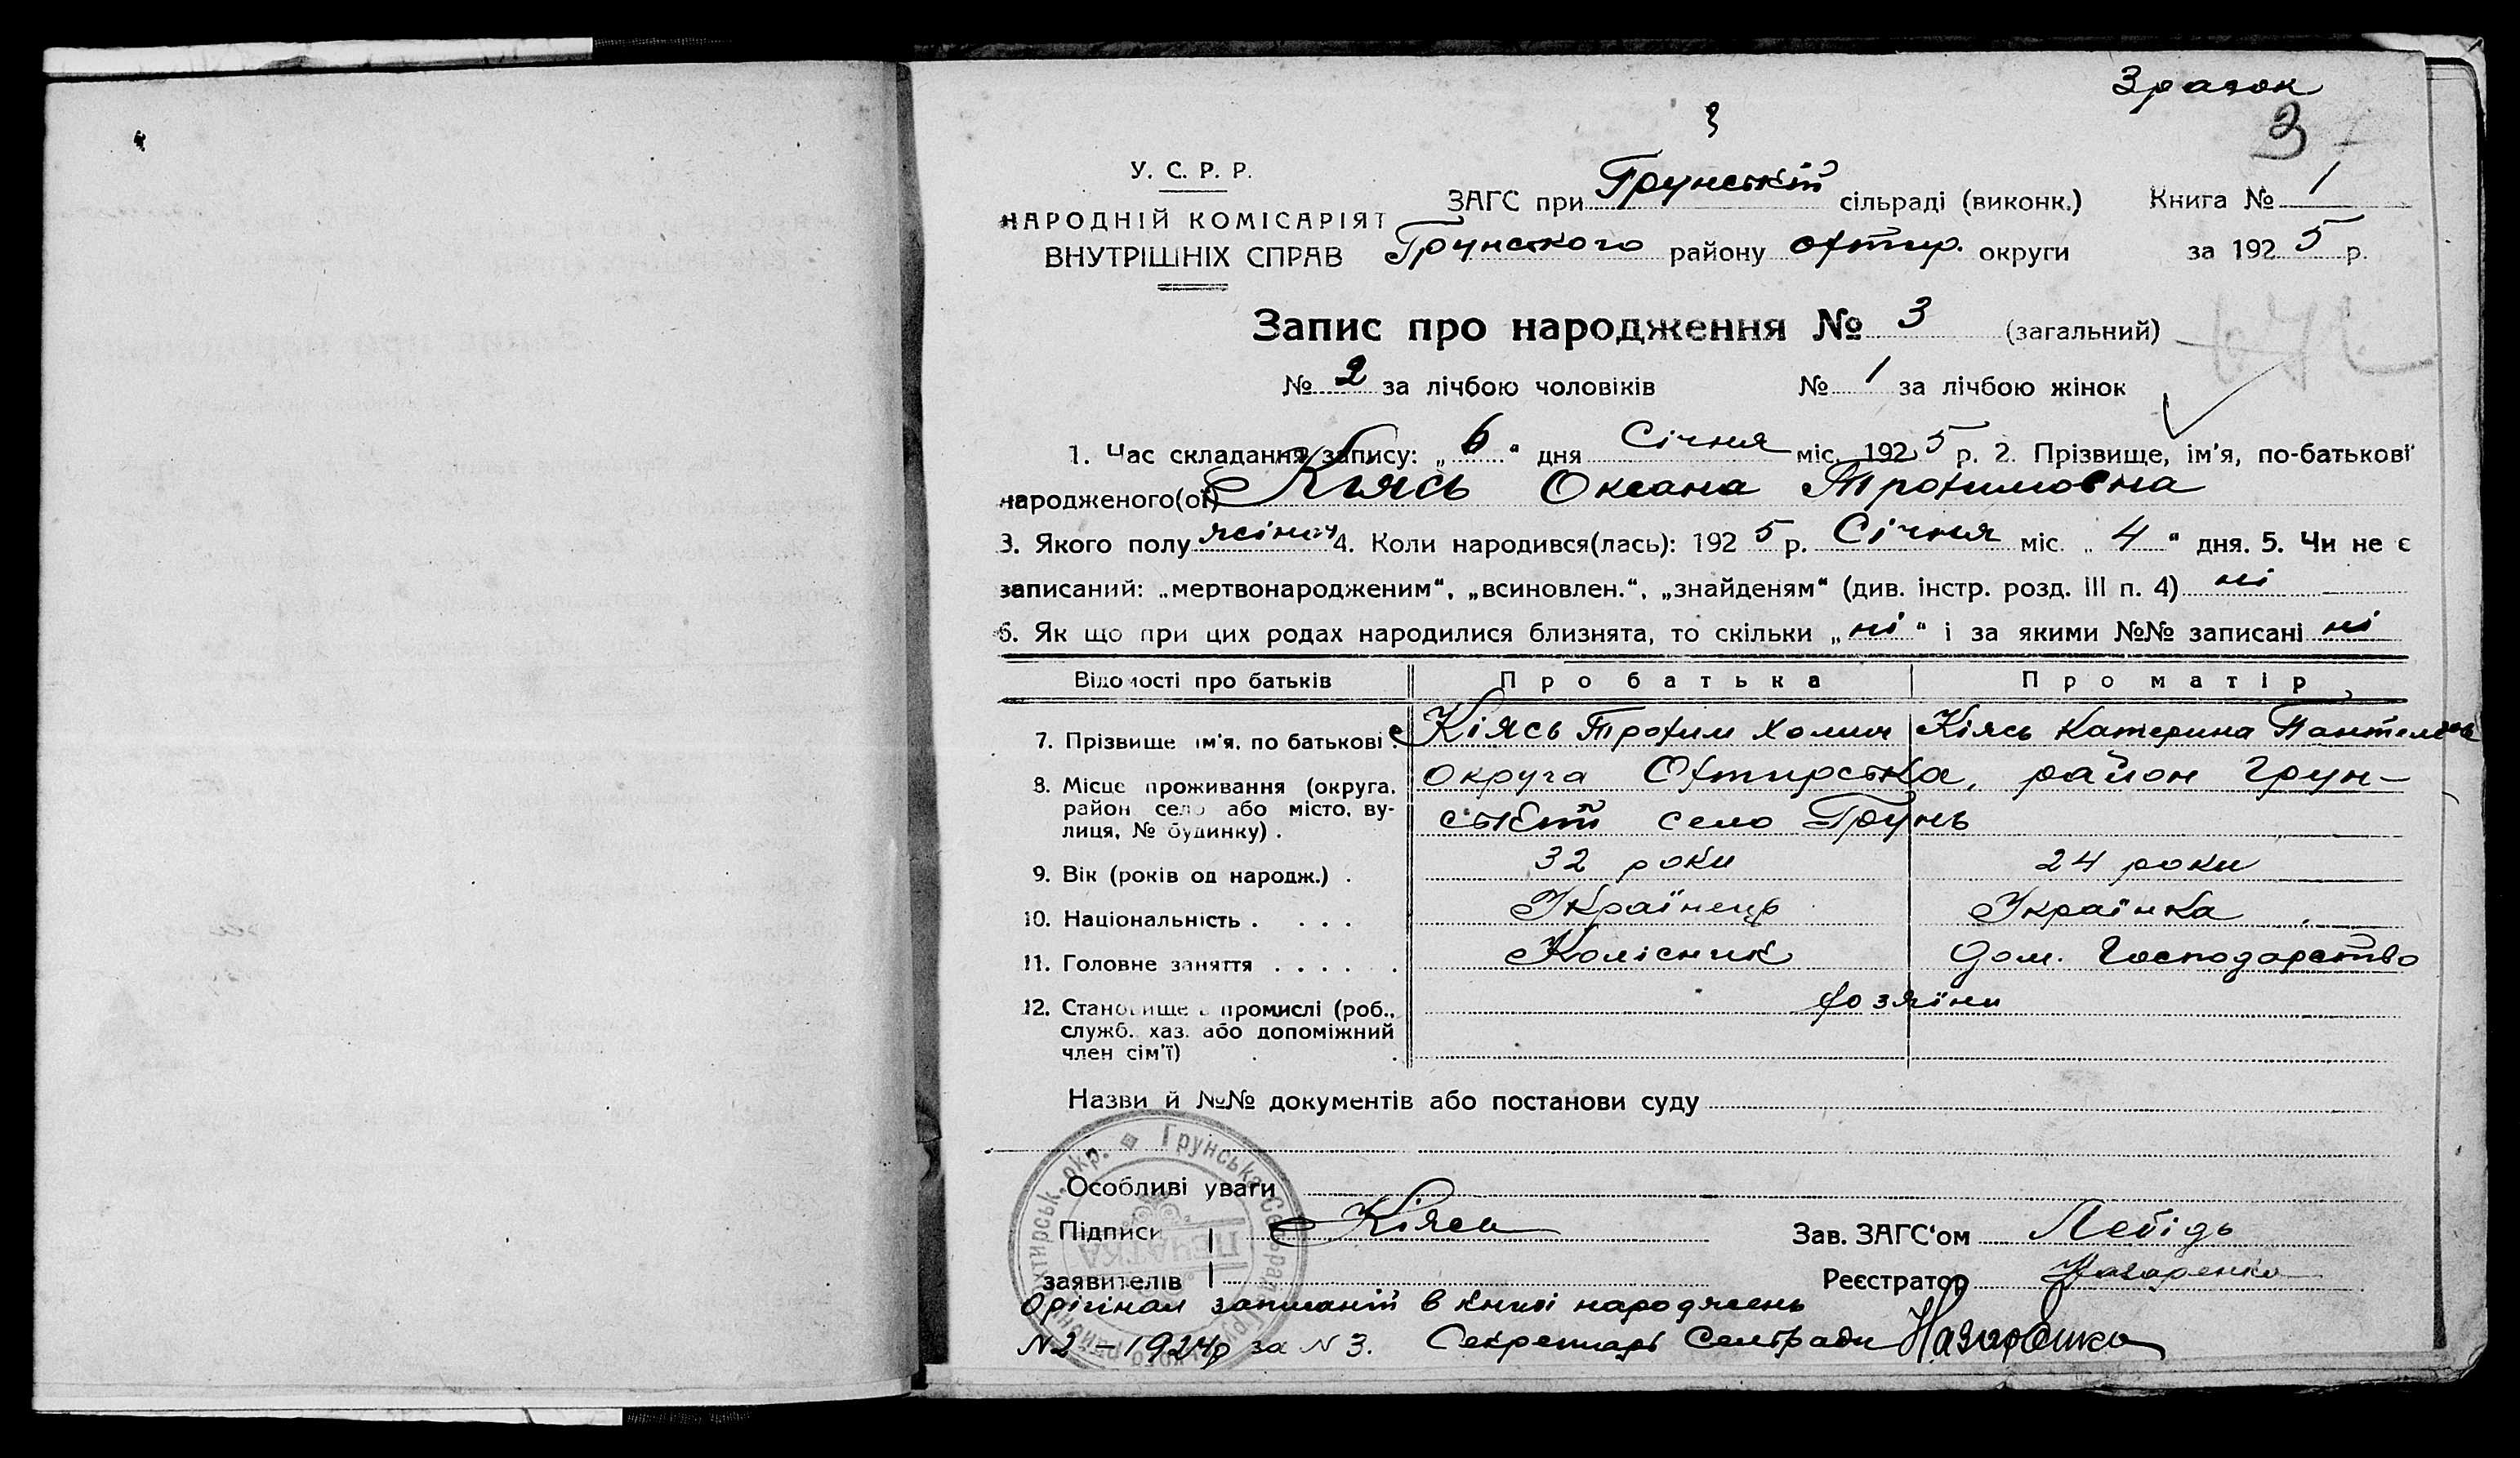 Зразок
3
3
У. С. Р. Р.
НАРОДНІЙ КОМІСАРІЯТ
ВНУТРІШНІХ СПРАВ
ЗАГС при Грунській сільраді (виконк.) Книга № 1
Грунського району Охтир. округи за 1925 р.
Запис про народження № 3 (загальний)
№ 2 за лічбою чоловіків № 1 за лічбою жінок
1. Час складання запису: „6“ дня Січня міс. 1925 р. 2. Прізвище, ім'я, по-батькові
народженого(ої) Кіясь Оксана Трохимовна
3. Якого полу жіноч 4. Коли народився(лась): 1925 р. Січня міс. „4“ дня. 5. Чи не є
записаний: „мертвонародженим“, „всиновлен.“, „знайденям“ (див. інстр. розд. III п. 4) ні
6. Як що при цих родах народилися близнята, то скільки „ні“ і за якими №№ записані ні
Відомості про батьків Про батька Про матір
7. Прізвище ім'я, по батькові . Кіясь Трохим Хомич Кіясь Катерина
8. Місце проживання (округа, район, село або місто, ву-
лиця, № будинку) .
округа Охтирська, район Грун-
ській село Грунь
9. Вік (років од народж.) . 32 роки 24 роки
10. Національність . . . . Українець Українка
11. Головне заняття . . . . . Колісник Дом. Господарство
12. Становище в промислі (роб.,
служб., хаз. або допоміжний
член сім'ї) . .
хозяїни
Назви й №№ документів або постанови суду
Особливі уваги
Підписи Кіясь Зав. ЗАГС'ом Лебідь
заявителів Реєстратор Назаренко
Орігінал записаній в книзі народжень
N2 – 1924р за N 3. Секретарь Сельради Назаренко
Грунська Сельрада Грунського району Охтирськ. окр.
ПЕЧАТКА